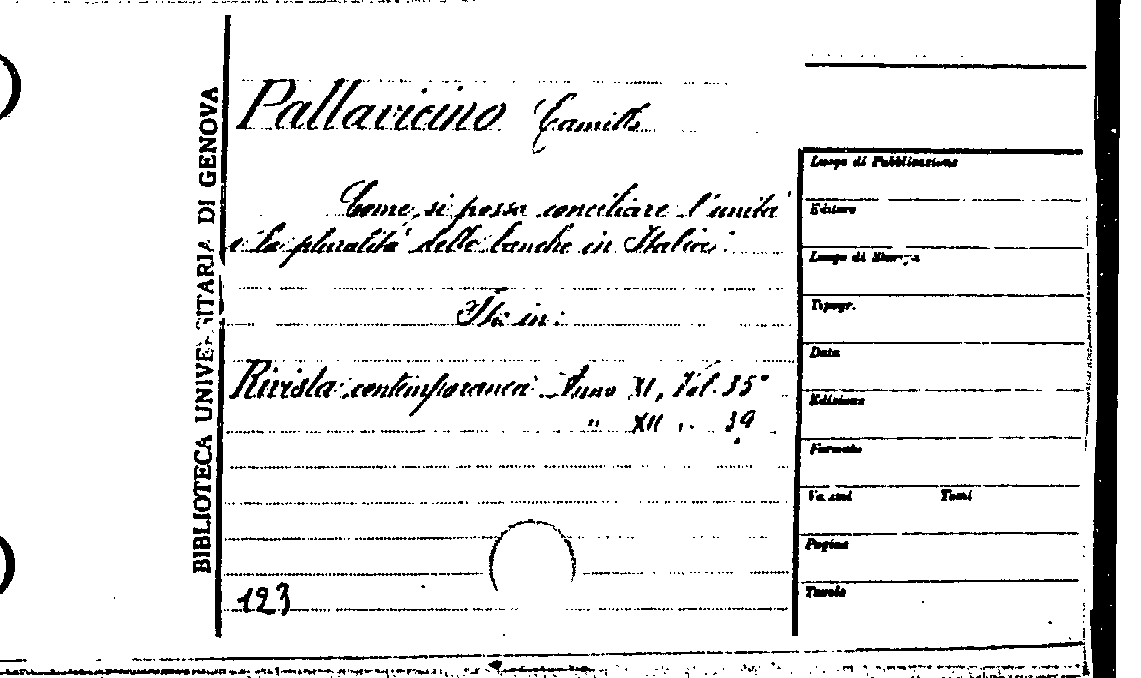 BIBLIOTECA UNIVERSITARIA DI GENOVA
Pallavicino Camillo
Come si possa conciliare l'unità
e la pluralità delle banche in Italia.
Sta in:
Rivista contemporanea Anno XI, Vol. 35°
" XII " 39
123
Luogo di Pubblicazione
Editore
Luogo di Stampa
Tipogr.
Data
Edizione
Formato
Volumi Tomi
Pagine
Tavole